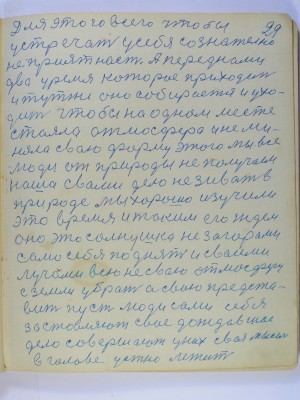 29
Для этого всего чтобы
устречат у себя сознателно
неприятност. А перед нами
два уремя которое приходит
и тут же оно собирается и ухо-
дит чтобы на одном месте
стояла атмосфера и не ми-
няла сваю форму этого мы все
люди от природы не получали
наша с вами дело не зиват в
природе мы хорошо изучили
это время и таким его ждем
оно это солнушка не загорами
само себя поднят и сваими
лучами всю не сваю атмосферу
с земли убрат а сваю предста-
вит пуст люди сами себя
заставляют свое дождавшие
дело совершают у них свая мысли
в голове устно лежит